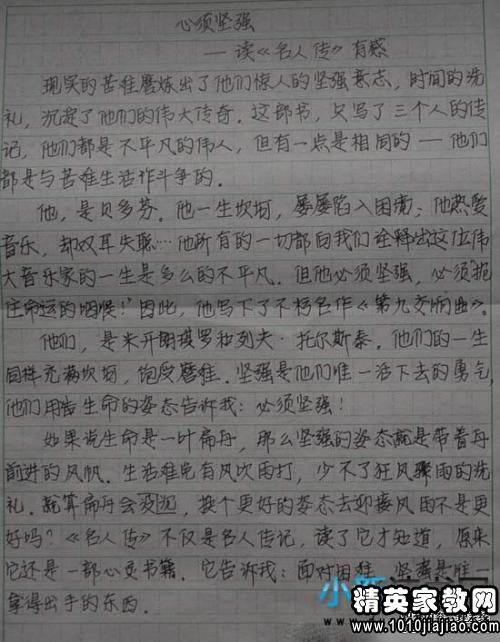 心须坚强
——读《名人传》有感
现实的苦难磨炼出了他们惊人的坚强意志，时间的洗
礼，沉淀了他们的伟大传奇。这部书，只写了三个人的传
记，他们都是不平凡的伟人，但有一点是相同的——他们
都是与苦难生活作斗争的。
他，是贝多芬。他一生坎坷，屡屡陷入困境；他热爱
音乐，却双耳失聪…他所有的一切都向我们诠释出这位伟
大音乐家的一生是多么的不平凡。但他必须坚强，必须‘扼
住命运的咽喉！’因此，他写下了不朽名作《第九交响曲》。
他们，是米开朗琪罗和列夫·托尔斯泰。他们的一生
同样充满坎坷，饱受磨难。坚强是他们唯一活下去的勇气
他们用告生命的姿态告诉我：必须坚强！
如果说生命是一叶扁舟，那么坚强的姿态就是带着舟
前进的风帆。生活难免有风吹雨打，少不了狂风骤雨的洗
礼。就算扁舟会没沉，换个更好的姿态去迎接风雨不是更
好吗？《名人传》不仅是名人传记，读了它才知道，原来
它还是一部心灵书籍。它告诉我：面对困难，坚强是唯一
拿得出手的东西。
精英家教网
www.1010jiajiao.com